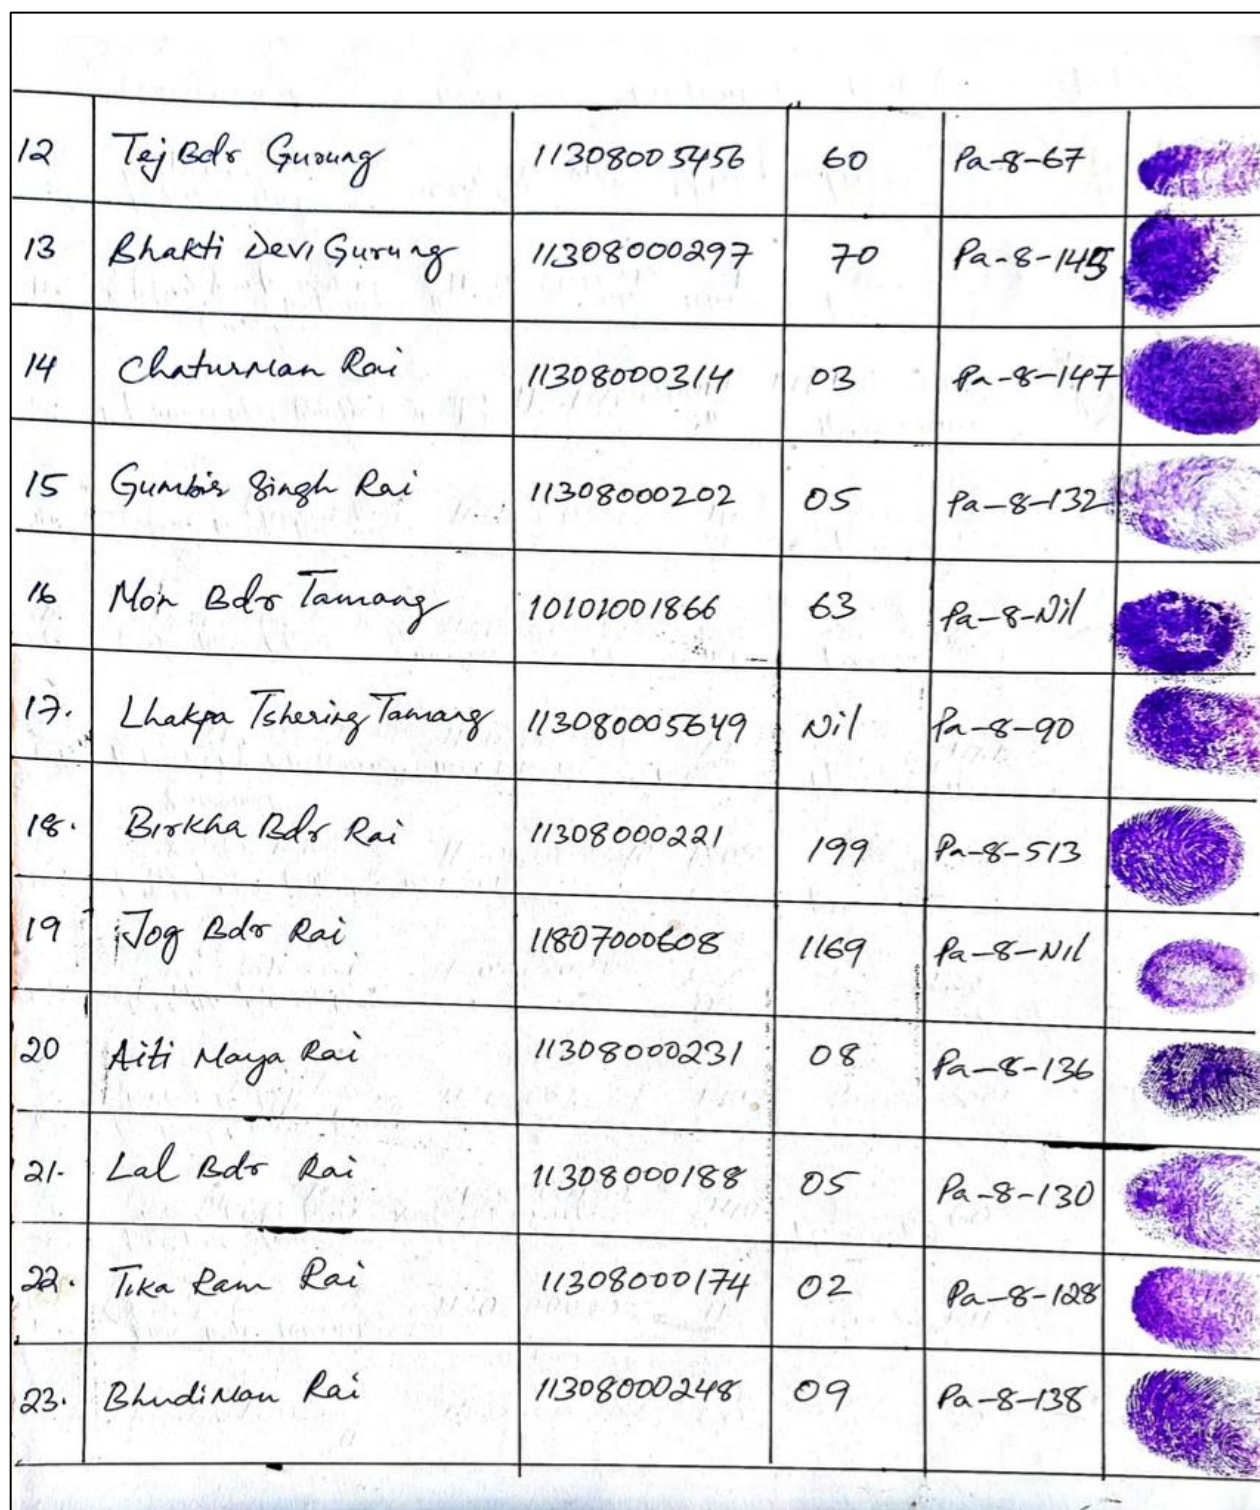 12 Tej Bdr Gurung 11308005456 60 Pa-8-67
13 Bhakti Devi Gurung 11308000297 70 Pa-8-145
14 Chaturman Rai 11308000314 03 Pa-8-147
15 Gumbir Singh Rai 11308000202 05 Pa-8-132
16 Mon Bdr Tamang 10101001866 63 Pa-8-Nil
17. Lhakpa Tshering Tamang 113080005649 Nil Pa-8-90
18. Birkha Bdr Rai 11308000221 199 Pa-8-513
19 Jog Bdr Rai 11807000608 1169 Pa-8-Nil
20 Aiti Maya Rai 11308000231 08 Pa-8-136
21. Lal Bdr Rai 11308000188 05 Pa-8-130
22. Tika Ram Rai 11308000174 02 Pa-8-128
23. Bhudiman Rai 11308000248 09 Pa-8-138